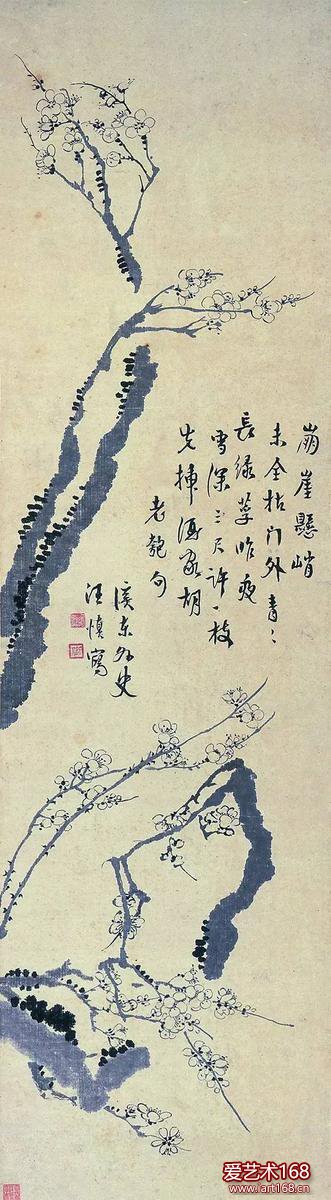 崩崖懸峭
未全枯门外青〻
長綠昨夜
雪深三尺許一枝
先揷酒家胡
老匏句
溪東外史
汪慎寫
爱艺术168
www.art168.cn